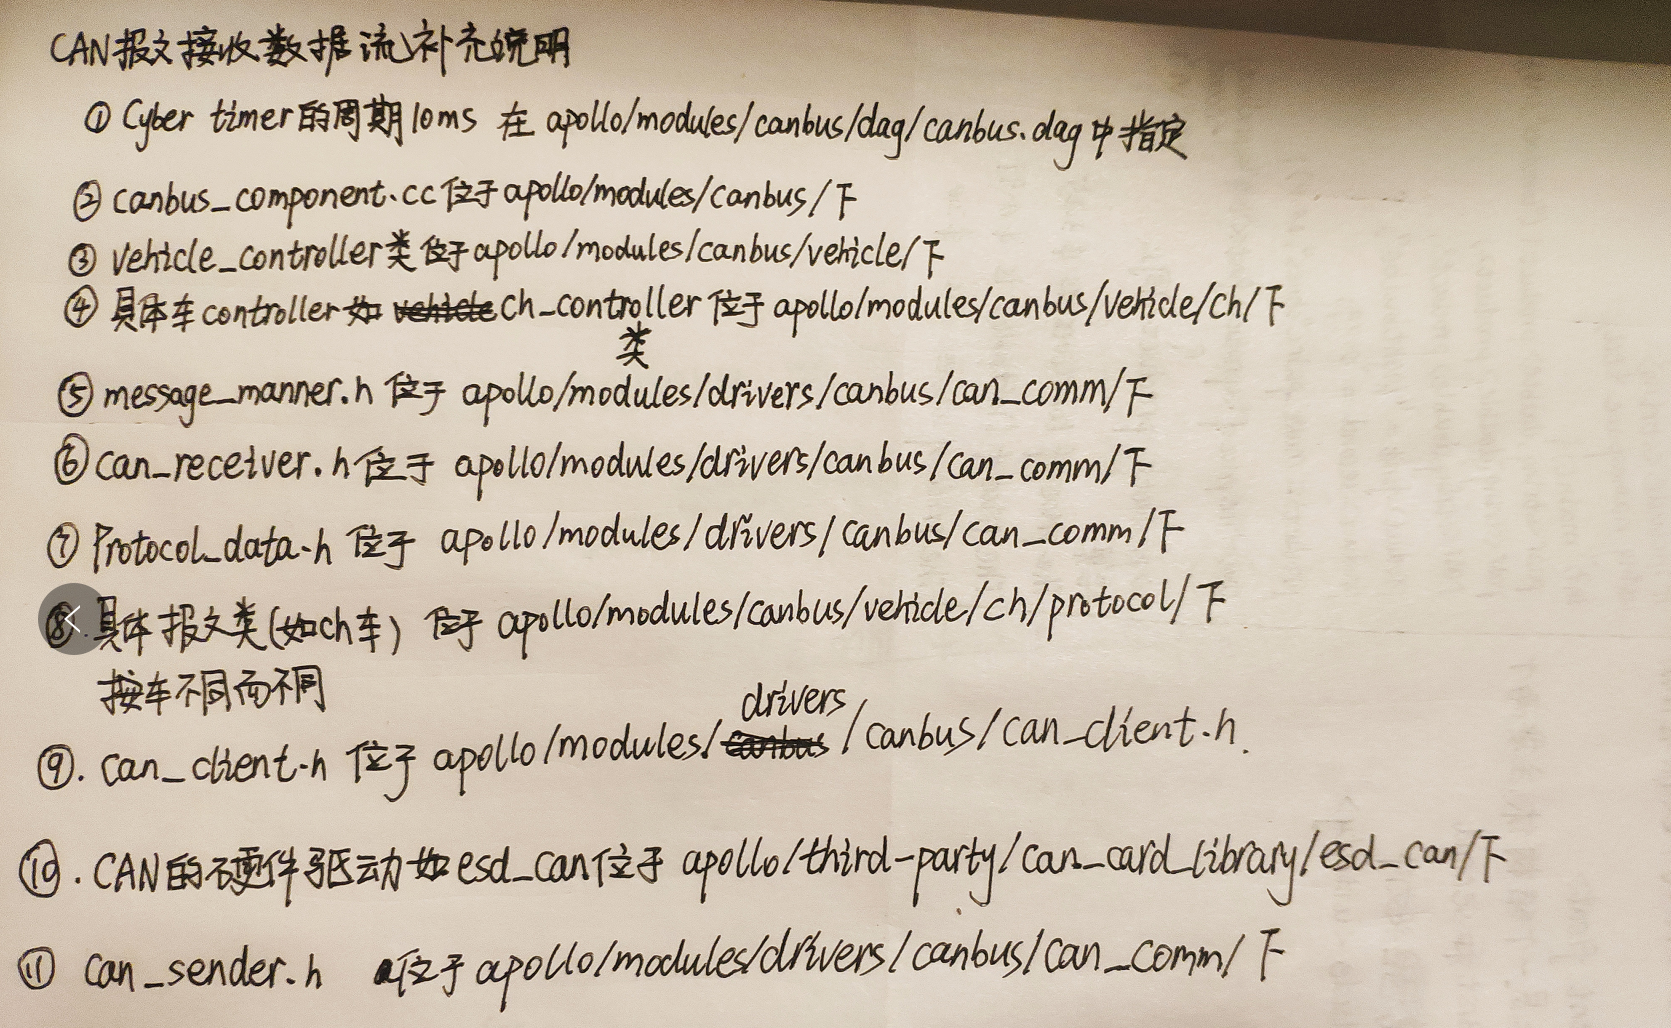 CAN报文接收数据流补充说明
① Cyber timer的周期10ms 在 apollo/modules/canbus/dag/canbus.dag中指定
② canbus_component.cc位于apollo/modules/canbus/下
③ vehicle_controller类位于apollo/modules/canbus/vehicle/下
④ 具体车controller如 ch_controller位于apollo/modules/canbus/vehicle/ch/下
类
⑤ message_manner.h 位于 apollo/modules/drivers/canbus/can_comm/下
⑥ can_receiver.h位于 apollo/modules/drivers/canbus/can_comm/下
⑦ Protocol_data.h 位于 apollo/modules/drivers/canbus/can_comm/下
⑧. 具体报文类(如ch车) 位于 apollo/modules/canbus/vehicle/ch/protocol/下
按车不同而不同
drivers
⑨. can_client.h 位于 apollo/modules/canbus/canbus/can_client.h.
⑩. CAN的硬件驱动如esd_can位于 apollo/third-party/can_card_library/esd_can/下
⑪ can_sender.h 位于apollo/modules/drivers/canbus/can_comm/下